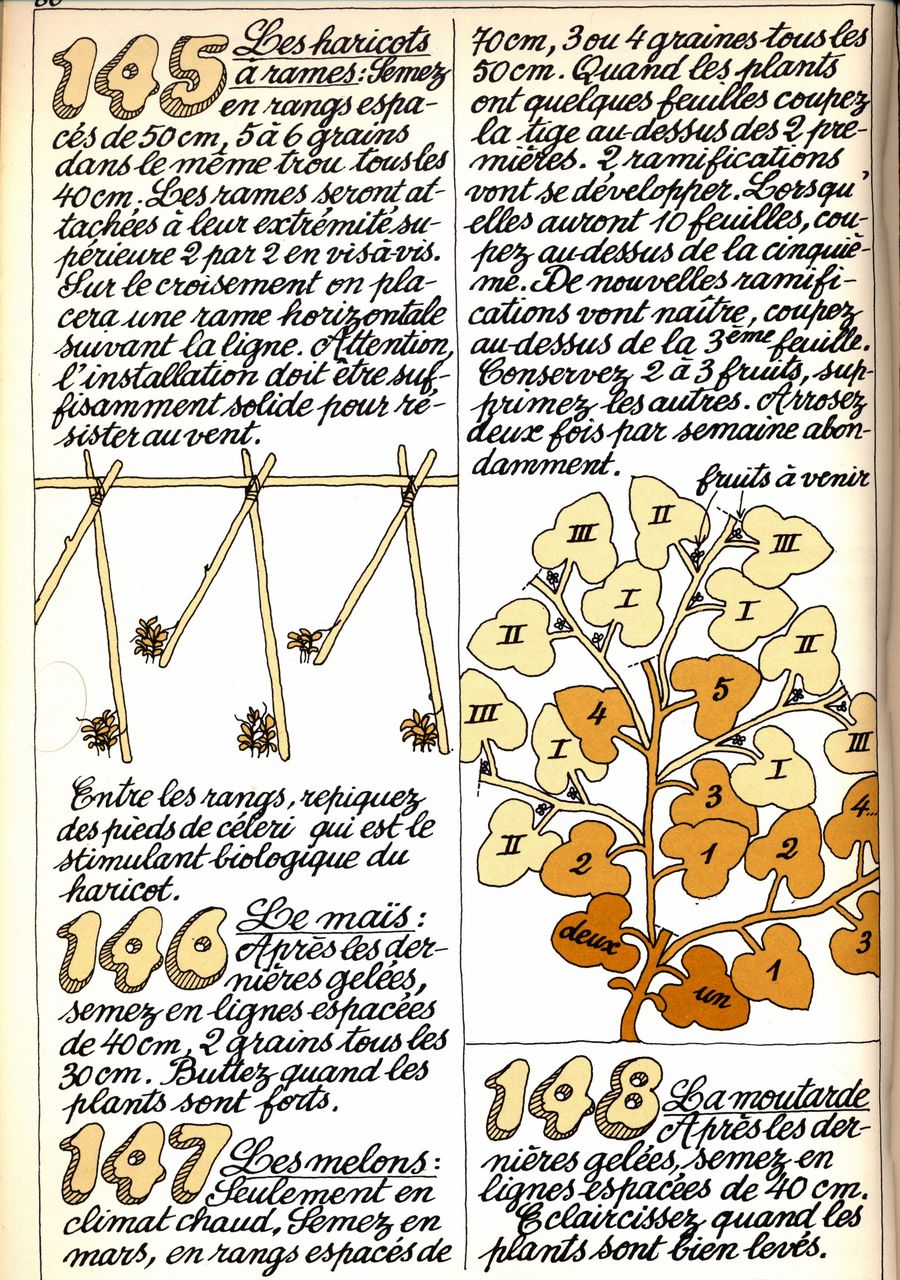 145 Les haricots
à rames : Semez
en rangs espa-
cés de 50 cm, 5 à 6 grains
dans le même trou tous les
40 cm. Les rames seront at-
tachées à leur extrémité su-
périeure 2 par 2 en vis à vis.
Sur le croisement on pla-
cera une rame horizontale
suivant la ligne. Attention,
l'installation doit être suf-
fisamment solide pour ré-
sister au vent.
Entre les rangs, repiquez
des pieds de céleri qui est le
stimulant biologique du
haricot.
146 Le maïs :
Après les der-
nières gelées,
semez en lignes espacées
de 40 cm, 2 grains tous les
30 cm. Buttez quand les
plants sont forts.
147 Les melons :
Seulement en
climat chaud. Semez en
mars, en rangs espacés de
70 cm, 3 ou 4 graines tous les
50 cm. Quand les plants
ont quelques feuilles coupez
la tige au-dessus des 2 pre-
mières. 2 ramifications
vont se développer. Lorsqu'
elles auront 10 feuilles, cou-
pez au-dessus de la cinquiè-
me. De nouvelles ramifi-
cations vont naître, coupez
au-dessus de la 3ème feuille.
Conservez 2 à 3 fruits, sup-
primez les autres. Arrosez
deux fois par semaine abon-
damment.
fruits à venir
III
II
III
I
I
II
II
III
4
5
I
III
I
3
4...
II
2
1
2
deux
3
un
1
148 La moutarde
Après les der-
nières gelées, semez en
lignes espacées de 40 cm.
Eclaircissez quand les
plants sont bien levés.